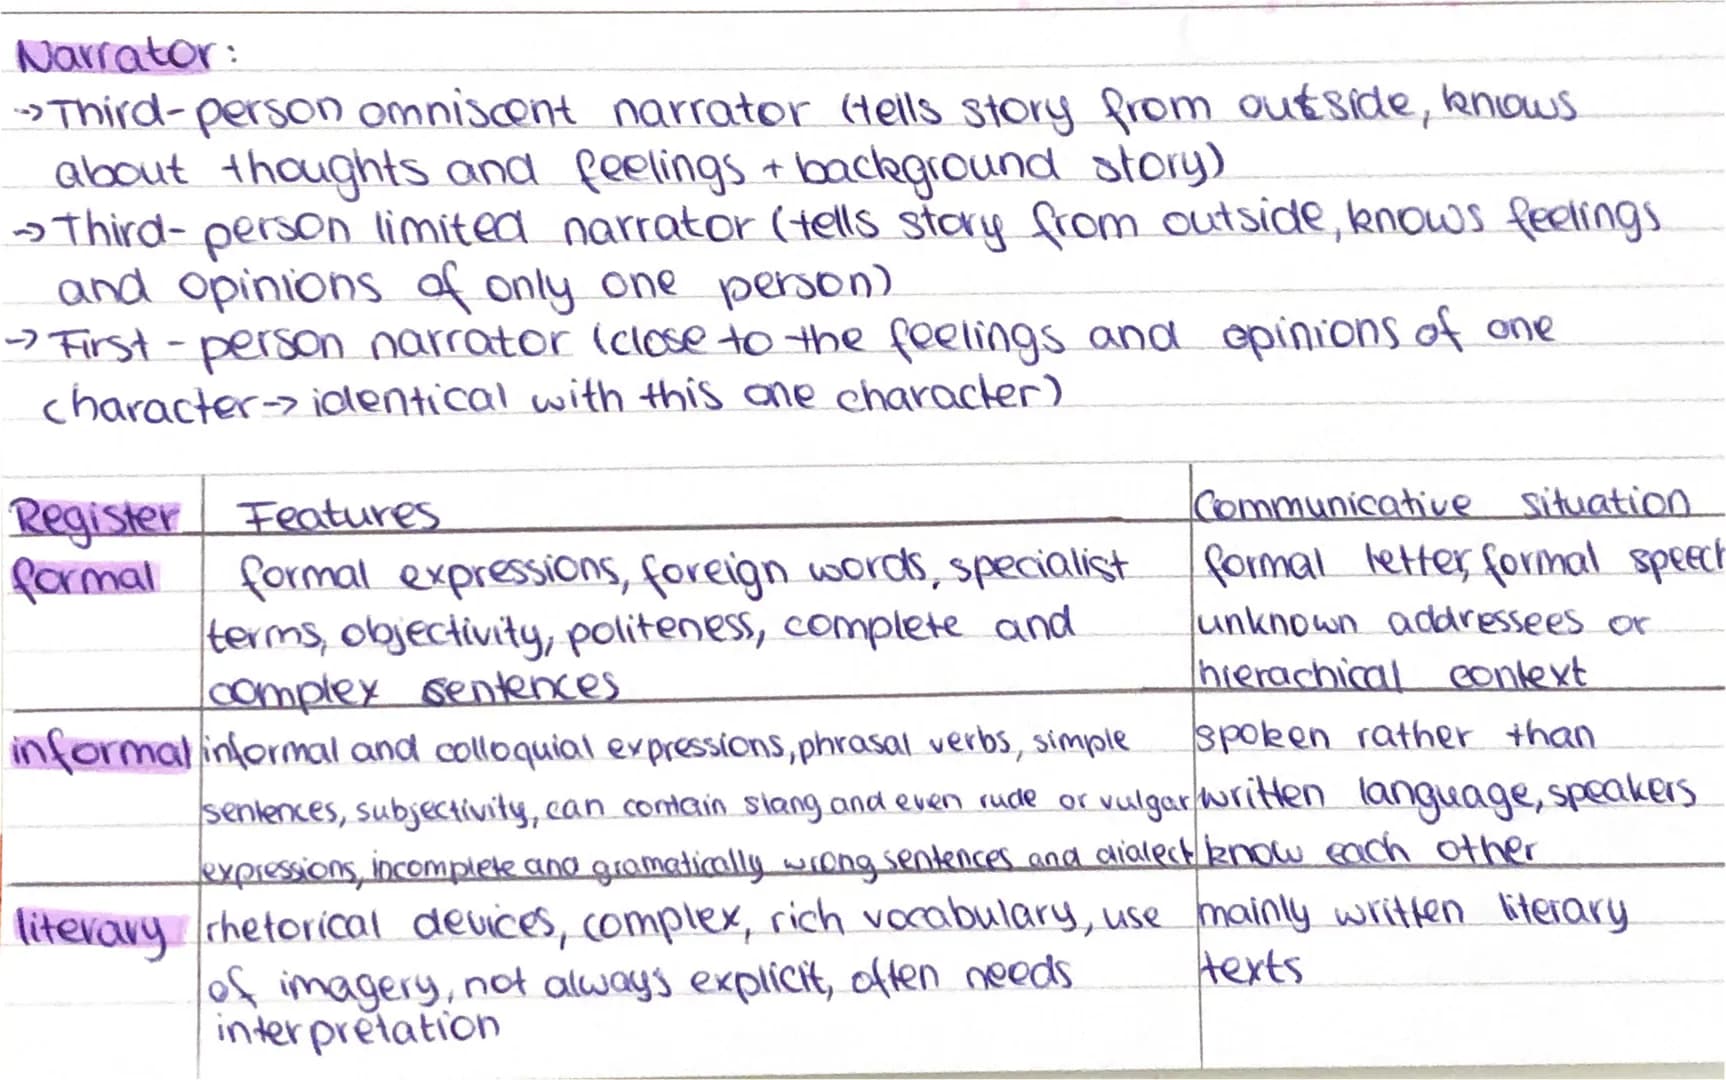 Narrator:
→Third-person omniscent narrator (tells story from outside, knows
about thoughts and feelings + background story)
→Third-person limited narrator (tells story from outside, knows feelings
and opinions of only one person)
→First-person narrator (close to the feelings and opinions of one
character→ identical with this one character)
Register Features Communicative situation
formal formal expressions, foreign words, specialist formal letter, formal speech
terms, objectivity, politeness, complete and unknown addressees or
complex sentences hierachical context
informal informal and colloquial expressions, phrasal verbs, simple spoken rather than
sentences, subjectivity, can contain slang and even rude or vulgar written language, speakers
expressions, incomplete and gramatically wrong sentences and dialect know each other
literary rhetorical devices, complex, rich vocabulary, use mainly written literary
of imagery, not always explicit, often needs texts
interpretation